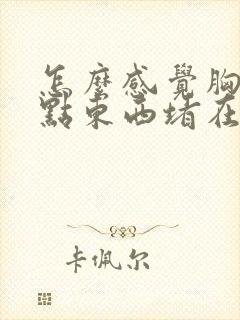 怎麼感覺胸
點東西堵在
卡佩尔